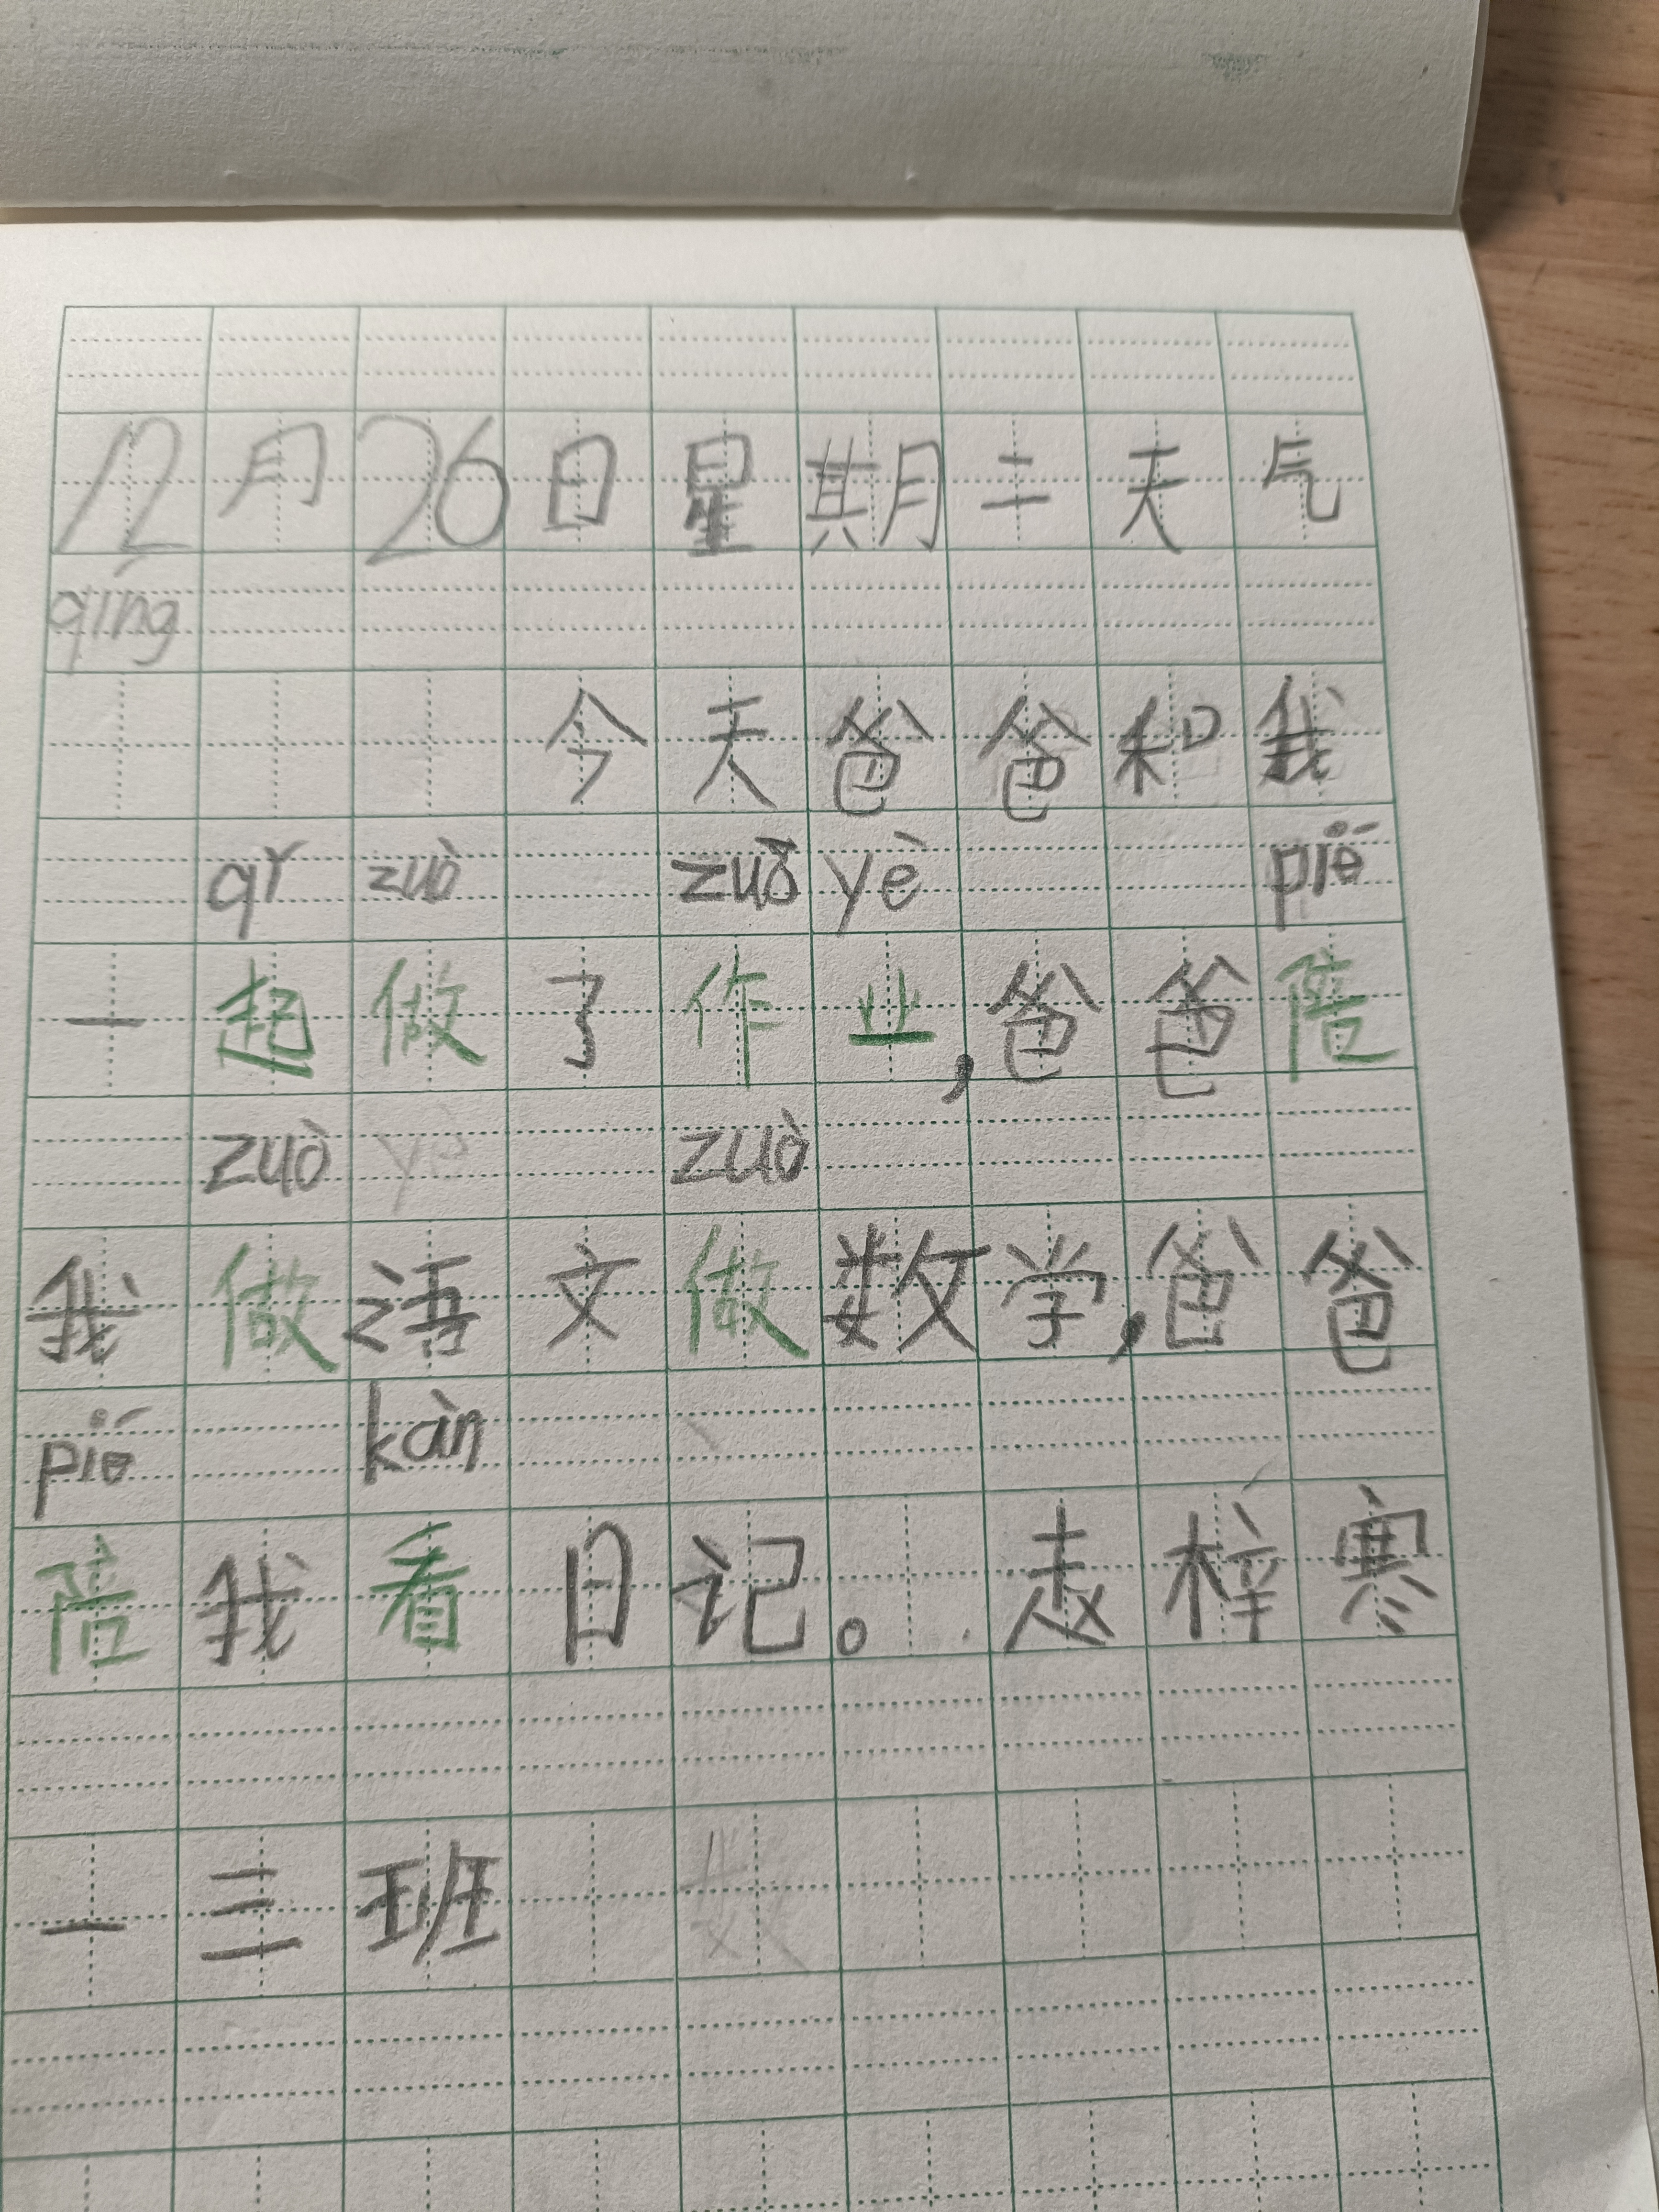 12月26日星期二天气
qíng
今天爸爸和我
qǐ zuò zuò yè pié
一起做了作业,爸爸陪
zuò zuò
我做语文做数学,爸爸
pié kàn
陪我看日记。赵梓寒
一三班